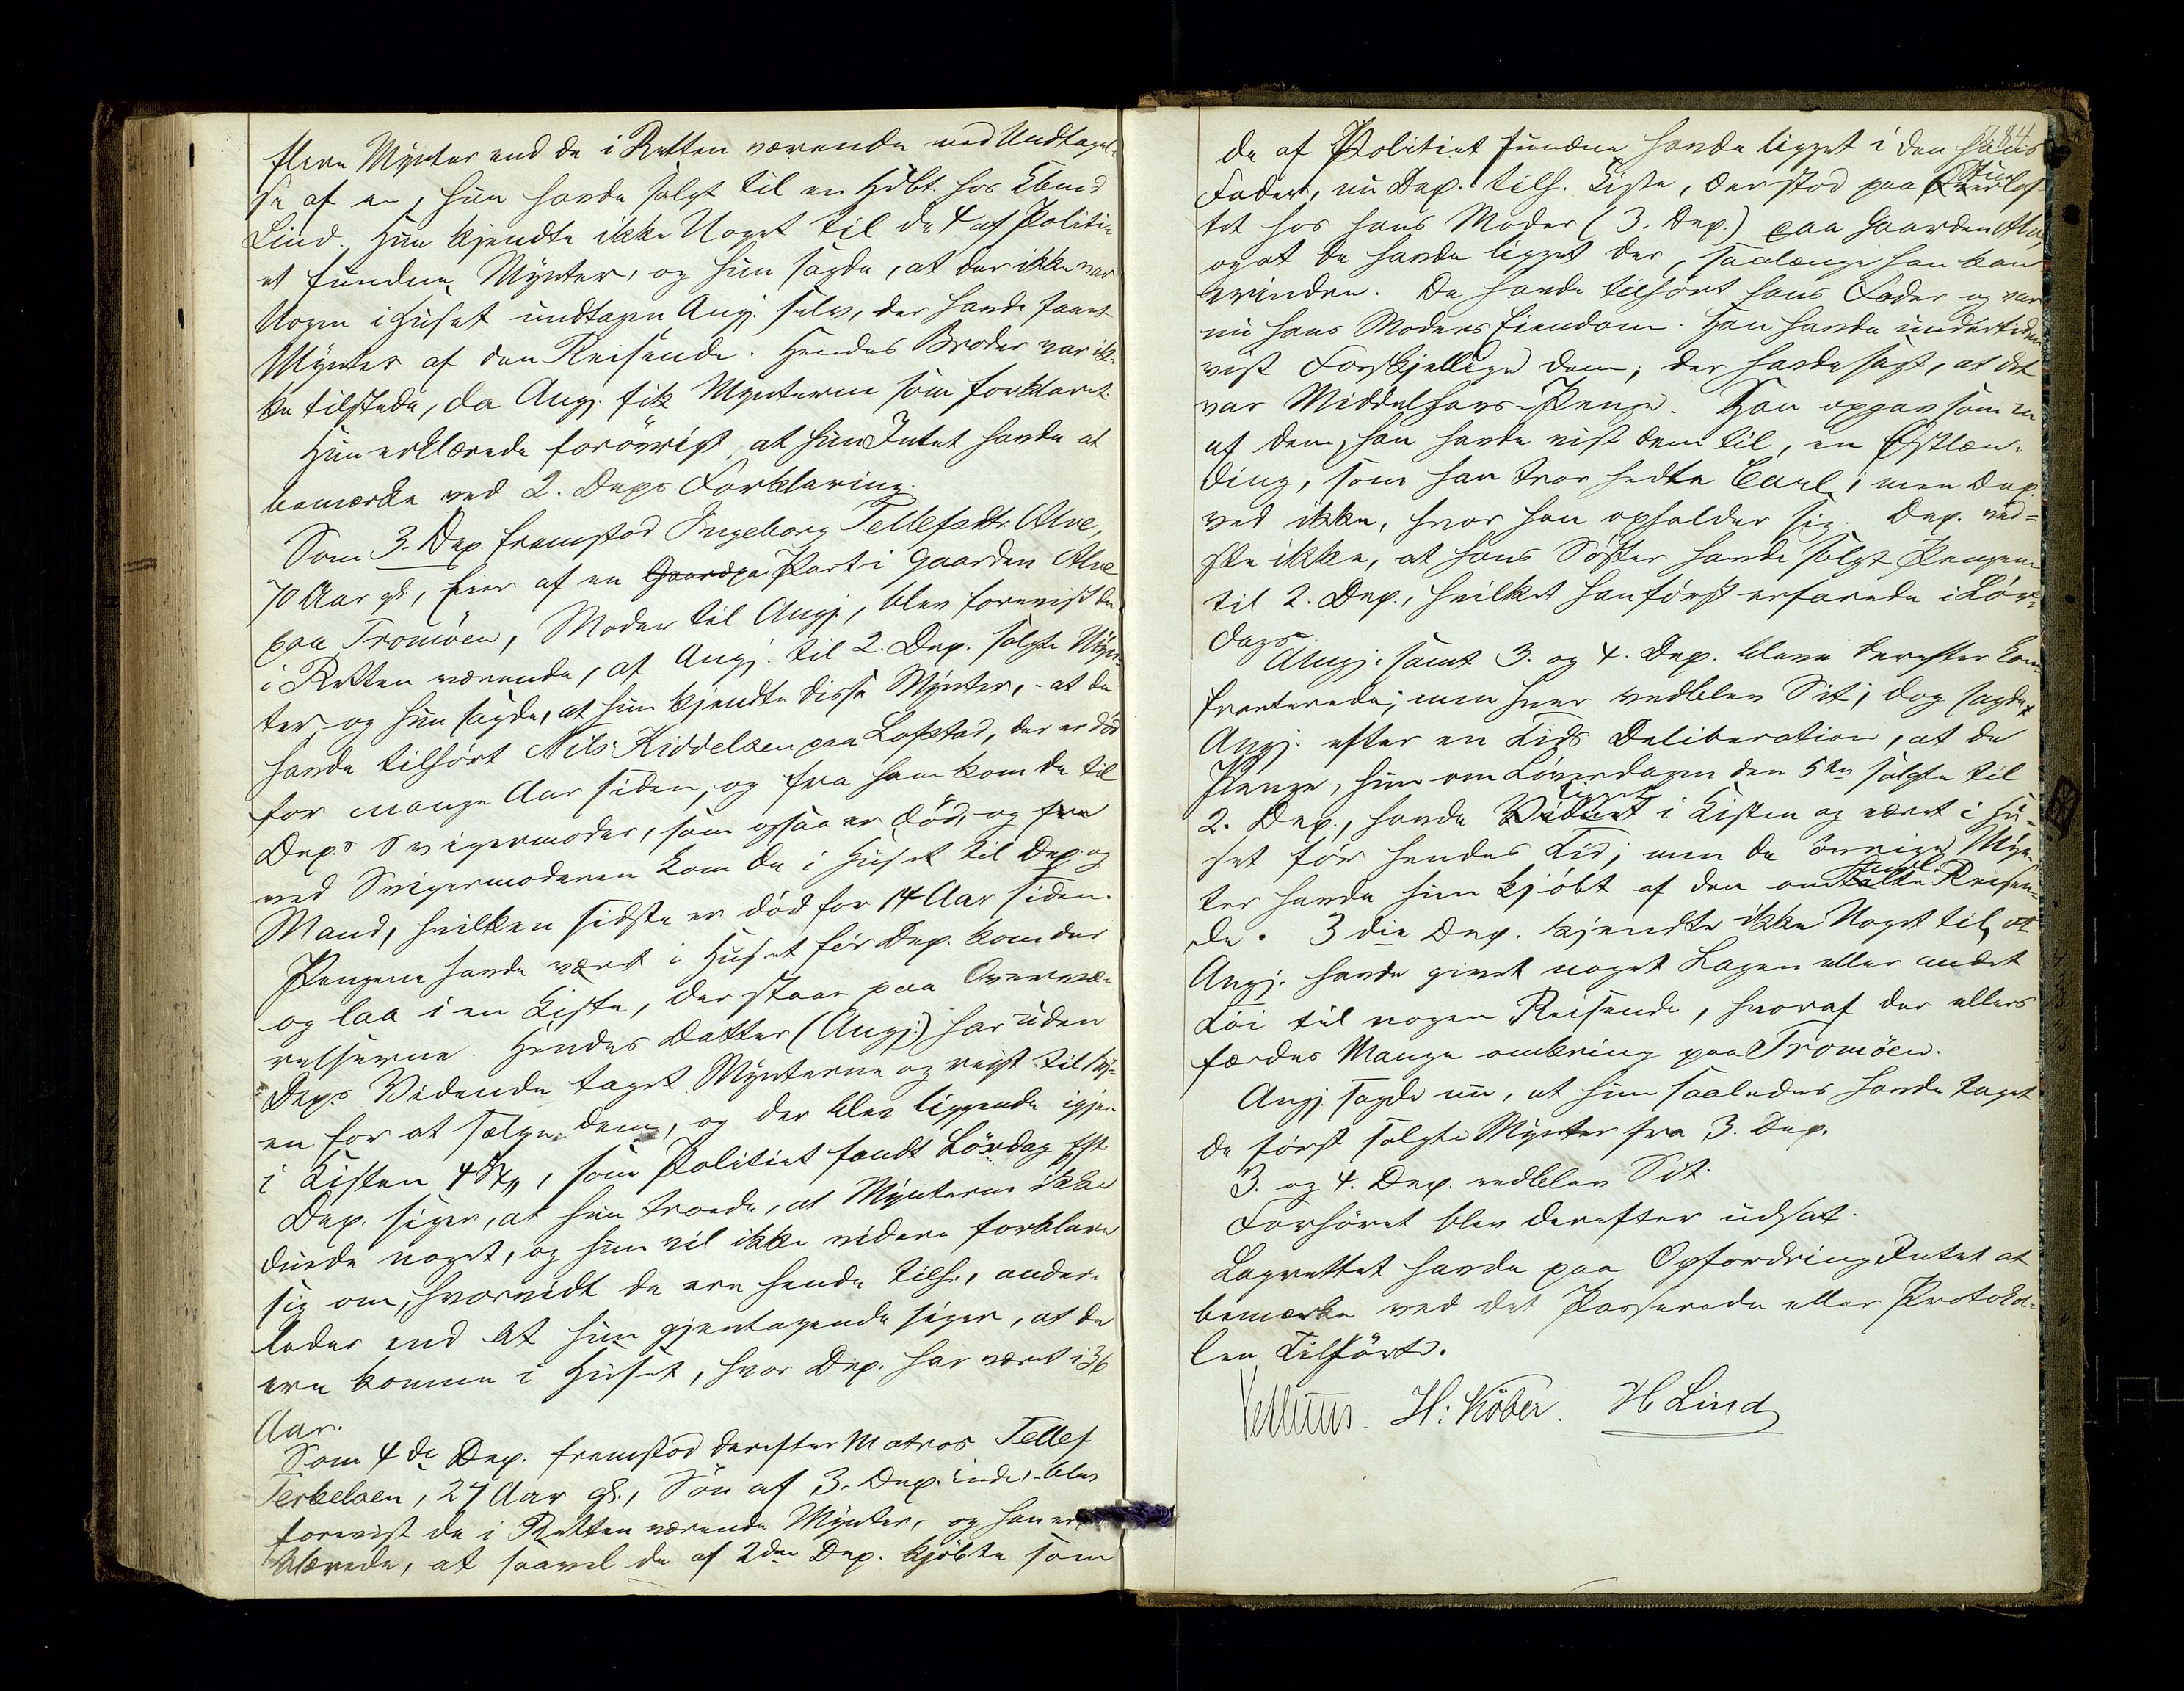 flere Mynter end de i Retten værende med Undtagel-
se af en, hun havde solgt til en Hdbt. hos Ebend
Lind. Hun kjendte ikke Noget til de 4 af Politi-
et fundne Mynter, og hun sagde, at der ikke var
Nogen i Huset undtagen Angj. selv, der havde faaet
Mynter af den Reisende. Hendes Broder var ik-
ke tilstede, da Angj. fik Mynterne som forklaret.
Hun erklærede forøvrigt, at hun Intet havde at
bemærke ved 2. Deps Forklaring.
Som 3. Dep. fremstod Ingeborg Tellefsdtr. Alve,
70 Aar gl., Eier af en Gaardpa Part i Gaarden Alve
paa Tromøen, Moder til Angj., blev forevist de
i Retten værende, af Angj. til 2. Dep. solgte Myn-
ter, og hun sagde, at hun kjendte disse Mynter, - at de
havde tilhørt Nils Kiddelsen paa Lofstad, der er død
for mange Aar siden, og fra ham kom de til
Dep.s Svigermoder, som ogsaa er død, og fra
ved Svigermoderen kom de i Huset til Dep. og
Mand, hvilken sidste er død for 14 Aar siden.
Pengene havde været i Huset før Dep. kom der
og laa i en Kiste, der staar paa Overvæ-
relserne. Hendes Datter (Angj.) har uden
Deps Vidende taget Mynterne og reist til By-
en for at sælge dem, og der blev liggende igjen
i Kisten 4 St., som Politiet fandt Lørdag Eft.
Dep. siger, at hun troede, at Mynterne ikke
duede noget, og hun vil ikke videre forklare
sig om, hvorvidt de ere hende tilh., ander-
ledes end at hun gjentagende siger, at de
ere komne i Huset, hvor Dep. har været i 36
Aar.
Som 4de Dep. fremstod derefter Matros Tellef
Terkelsen, 27 Aar gl., Søn af 3. Dep. inde, - blev
forevist de i Retten værende Mynter, og han er-
klærede, at saavel de af 2den Dep. kjøbte som
784
de af Politiet fundne havde ligget i den hans
Fader, nu Dep. tilh. Kiste, der stod paa Stuelof-
tet hos hans Moder (3. Dep.) paa Gaarden Alve,
og at de havde ligget der, saalænge han kan
erindre. De havde tilhørt hans Fader og var
nu hans Moders Eiendom. Han havde undertiden
vist Forskjellige dem, der havde sagt, at det
var Middelhavs-Penge. Han opgav som en
af dem, han havde vist dem til, en Østlæn-
ding, som han tror hedte Carl; men Dep.
ved ikke, hvor han opholder sig. Dep. vid-
ste ikke, at hans Søster havde solgt Pengene
til 2. Dep., hvilket han først erfarede i Lør-
dags.
Angj. samt 3. og 4. Dep. bleve derefter kon-
fronterede; men hver vedblev Sit; dog sagde
Angj. efter en Tids Deliberation, at de
Penge, hun om Løverdagen den 5te solgte til
ligget
2. Dep., havde Vidnet i Kisten og været i Hu-
set før hendes Tid; men de øvrige Myn-
ter havde hun kjøbt af den omtalte Reisen-
de. 3die Dep. kjendte ikke Noget til, at
Angj. havde givet noget Lagen eller andet
Tøi til nogen Reisende, hvoraf der ellers
færdes Mange omkring paa Tromøen.
Angj. sagde nu, at hun saaledes havde taget
de først solgte Mynter fra 3. Dep.
3. og 4. Dep. vedblev Sit.
Forhøret blev derefter udsat.
Lagrettet havde paa Opfordring Intet at
bemærke ved det Passerede eller Protokol-
len Tilførte.
H: Köber. H Lind